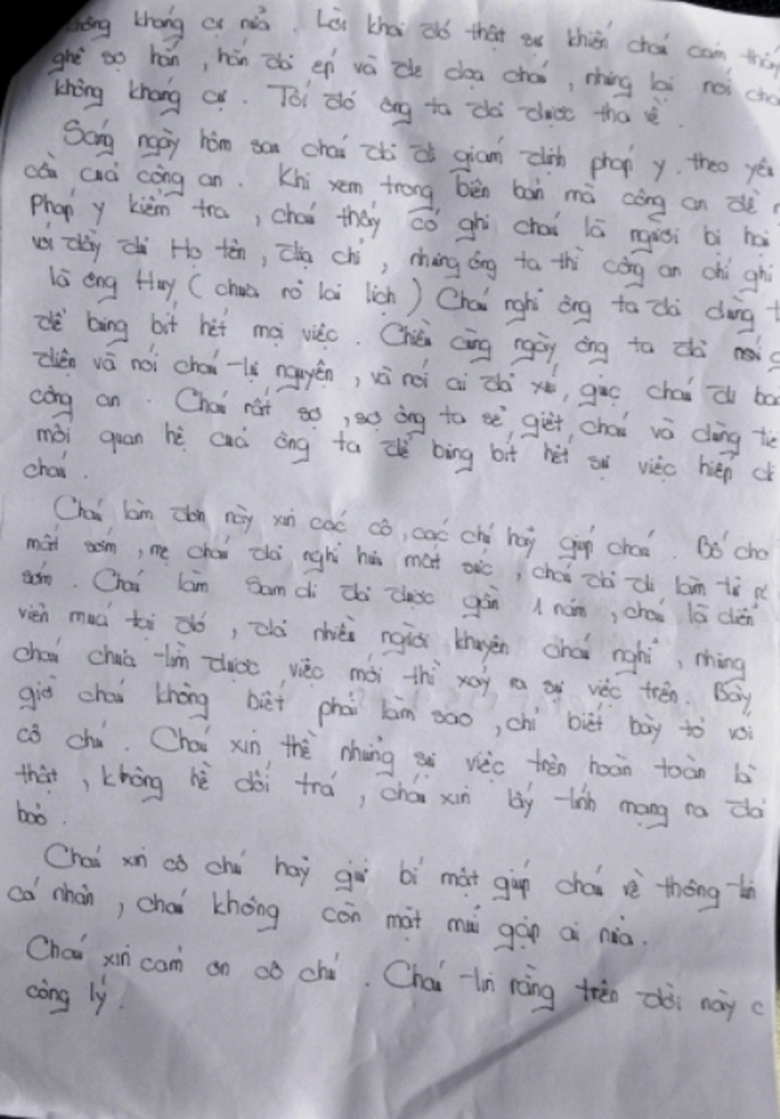 không kháng cự nữa. Lời khai đó thật sự khiến cháu cảm thấy
ghê sợ hắn, hắn đã ép và đe doạ cháu, nhưng lại nói
không kháng cự. Tối đó ông ta đã được tha về.
Sáng ngày hôm sau cháu đã đi giám định pháp y theo yêu
cầu của công an. Khi xem trong biên bản mà công an để
Pháp y kiểm tra, cháu thấy có ghi cháu là người bị hại
với đầy đủ Họ tên, địa chỉ, nhưng ông ta thì công an chỉ ghi
là ông Huy (chưa rõ lai lịch) Cháu nghĩ ông ta đã dùng
để bưng bít hết mọi việc. Chiều cùng ngày ông ta đã
diện và nói cháu tự nguyện, và nói ai đã xúi, giục cháu đi
công an. Cháu rất sợ, sợ ông ta sẽ giết cháu và dùng
mối quan hệ của ông ta để bưng bít hết sự việc hiếp
cháu.
Cháu làm đơn này xin các cô, các chú hãy giúp cháu. Bố
mất sớm, mẹ cháu đã nghỉ hưu mất sức, cháu đã đi làm từ
sớm. Cháu làm Samdi đã được gần 1 năm, cháu là diễn
viên múa tại đó, đã nhiều người khuyên cháu nghỉ, nhưng
cháu chưa tìm được việc mới thì xảy ra sự việc trên. Bây
giờ cháu không biết phải làm sao, chỉ biết bày tỏ với
cô chú. Cháu xin thề những sự việc trên hoàn toàn là
thật, không hề dối trá, cháu xin lấy tính mạng ra đảm
bảo.
Cháu xin cô chú hãy giữ bí mật giúp cháu về thông tin
cá nhân, cháu không còn mặt mũi gặp ai nữa.
Cháu xin cảm ơn cô chú. Cháu tin rằng trên đời này
công lý.